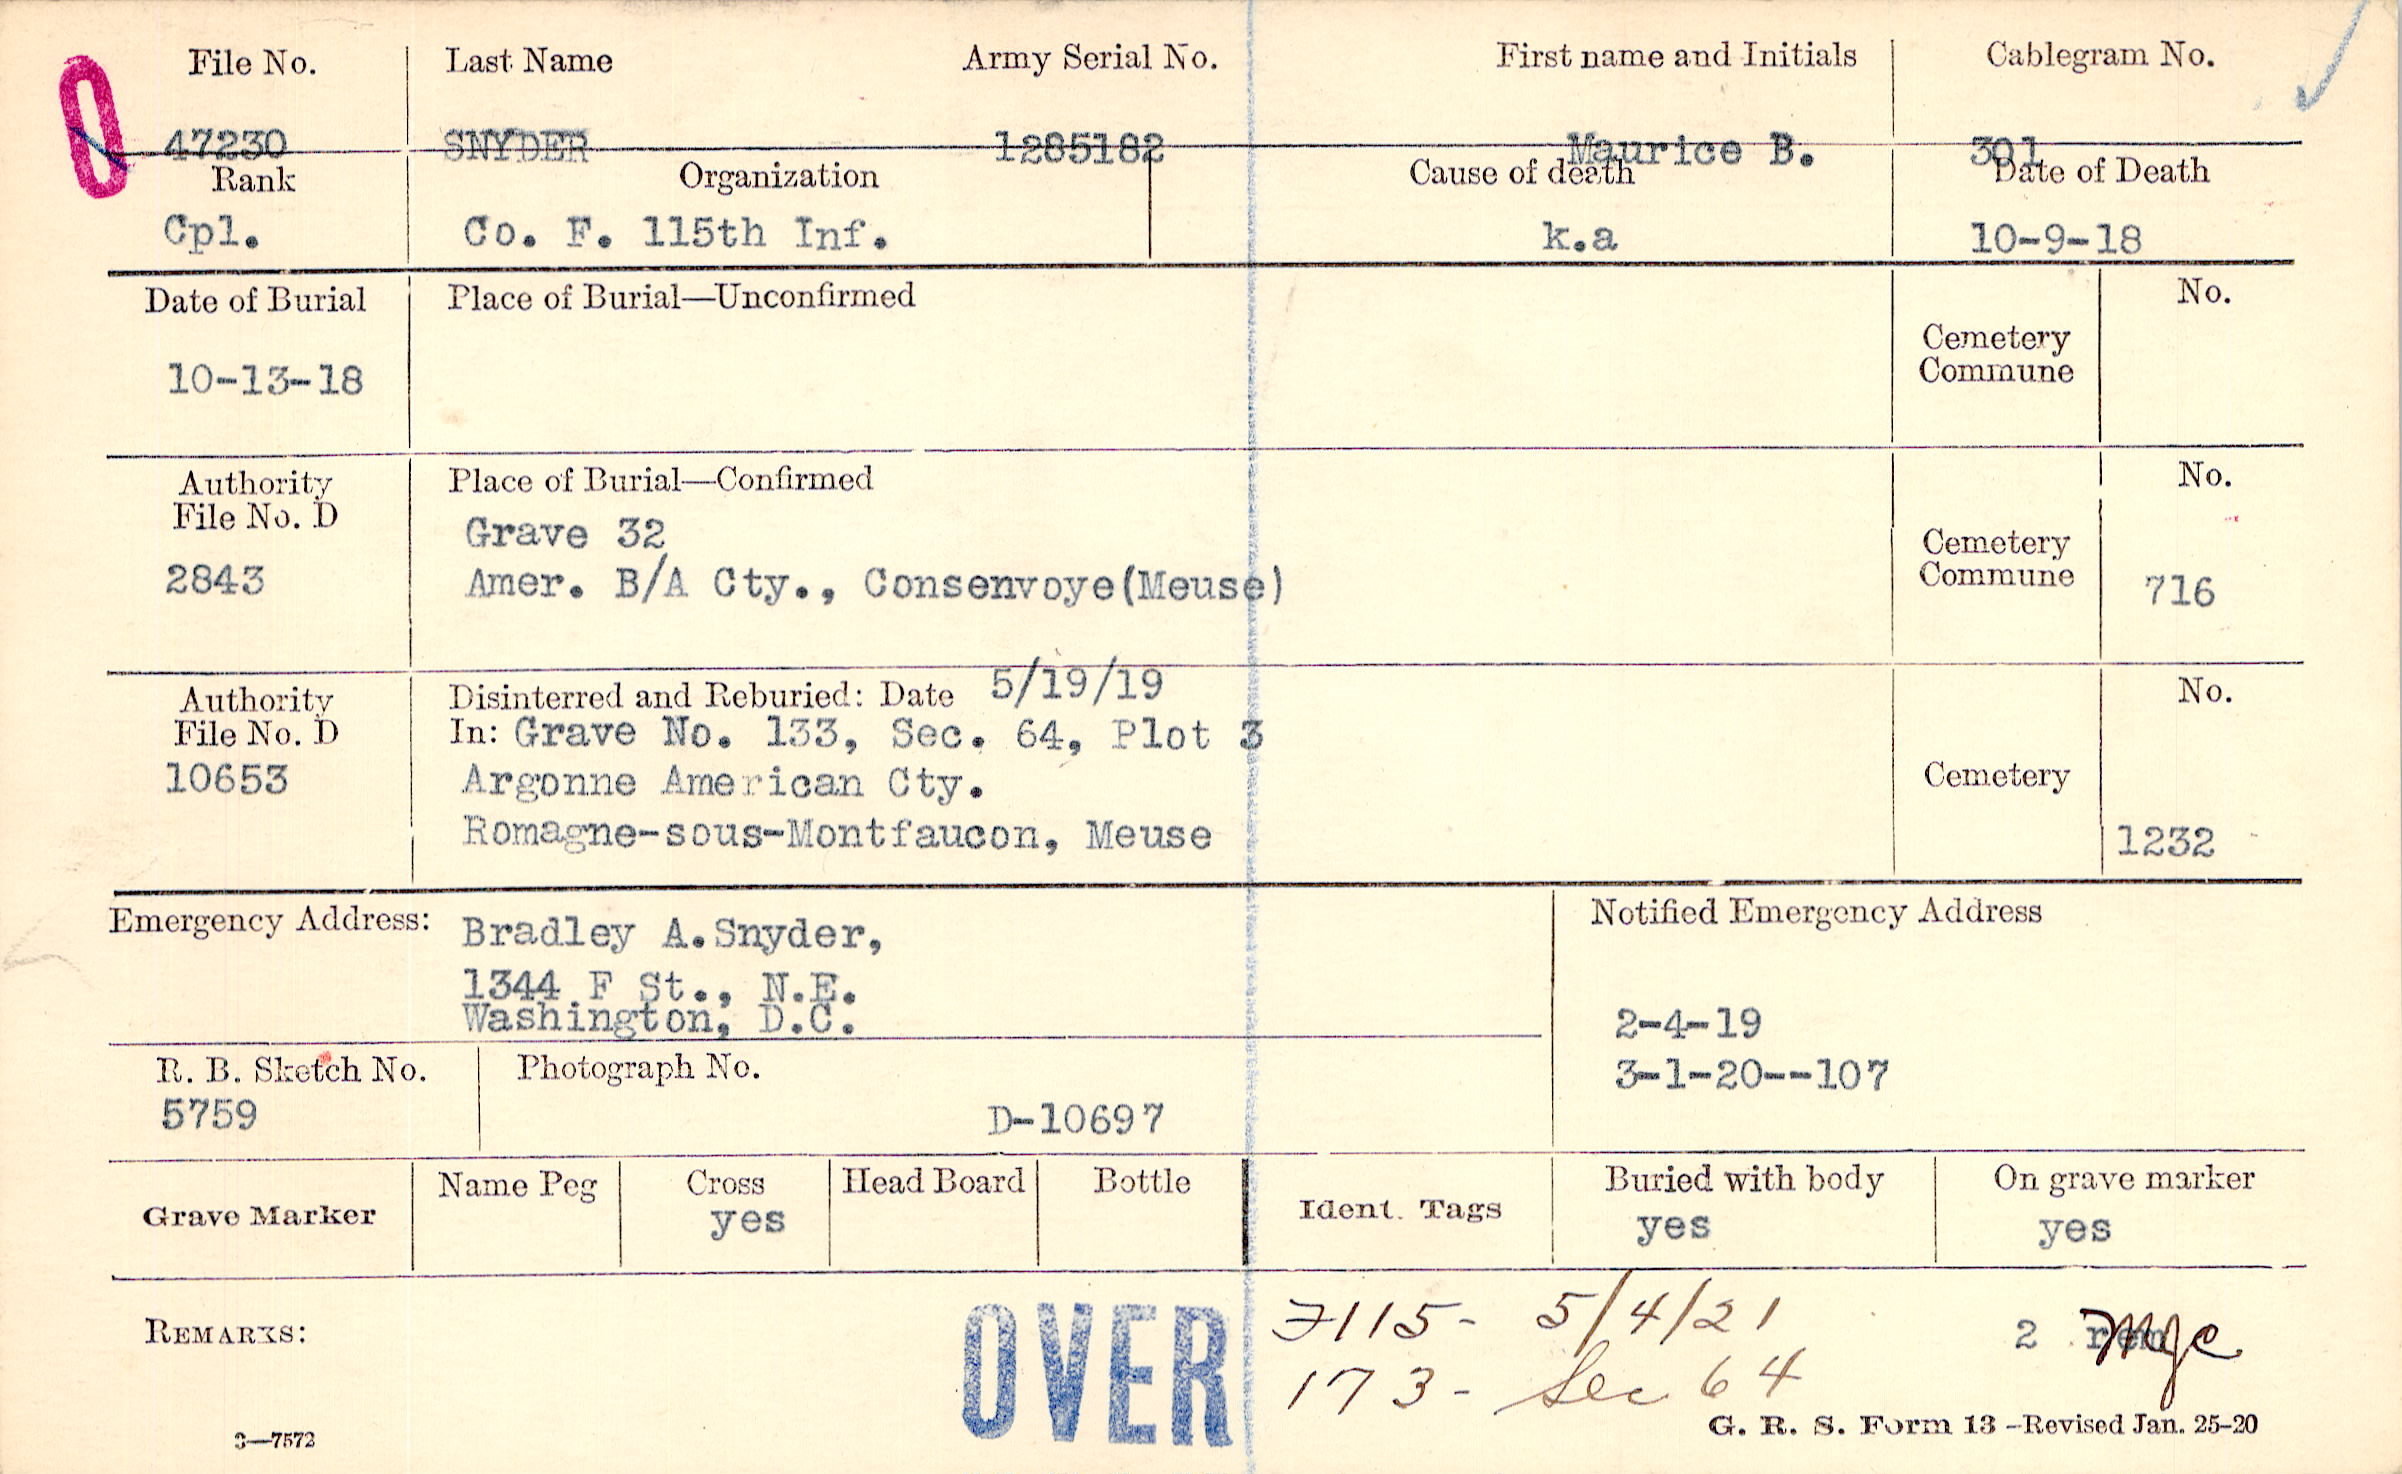 File No. Last Name Army Serial No. First name and Initials Cablegram No.
0 47230 SNYDER 1285182 Maurice B. 301
Rank Organization Cause of death Date of Death
Cpl. Co. F. 115th Inf. k.a 10-9-18
Date of Burial Place of Burial—Unconfirmed No.
Cemetery
Commune
10-13-18
Authority Place of Burial—Confirmed No.
File No. D
Grave 32
Cemetery
2843 Amer. B/A Cty., Consenvoye(Meuse) Commune 716
Authority Disinterred and Reburied: Date 5/19/19 No.
File No. D In: Grave No. 133, Sec. 64, Plot 3
10653 Argonne American Cty. Cemetery
Romagne-sous-Montfaucon, Meuse 1232
Emergency Address: Bradley A.Snyder, Notified Emergency Address
1344 F St., N.E.
Washington, D.C. 2-4-19
R. B. Sketch No. Photograph No. 3-1-20--107
5759 D-10697
Grave Marker Name Peg Cross Head Board Bottle Ident. Tags Buried with body On grave marker
yes yes yes
REMARKS: OVER 7115- 5/4/21 2
173- Sec 64
3—7572 G. R. S. Form 13 -Revised Jan. 25-20